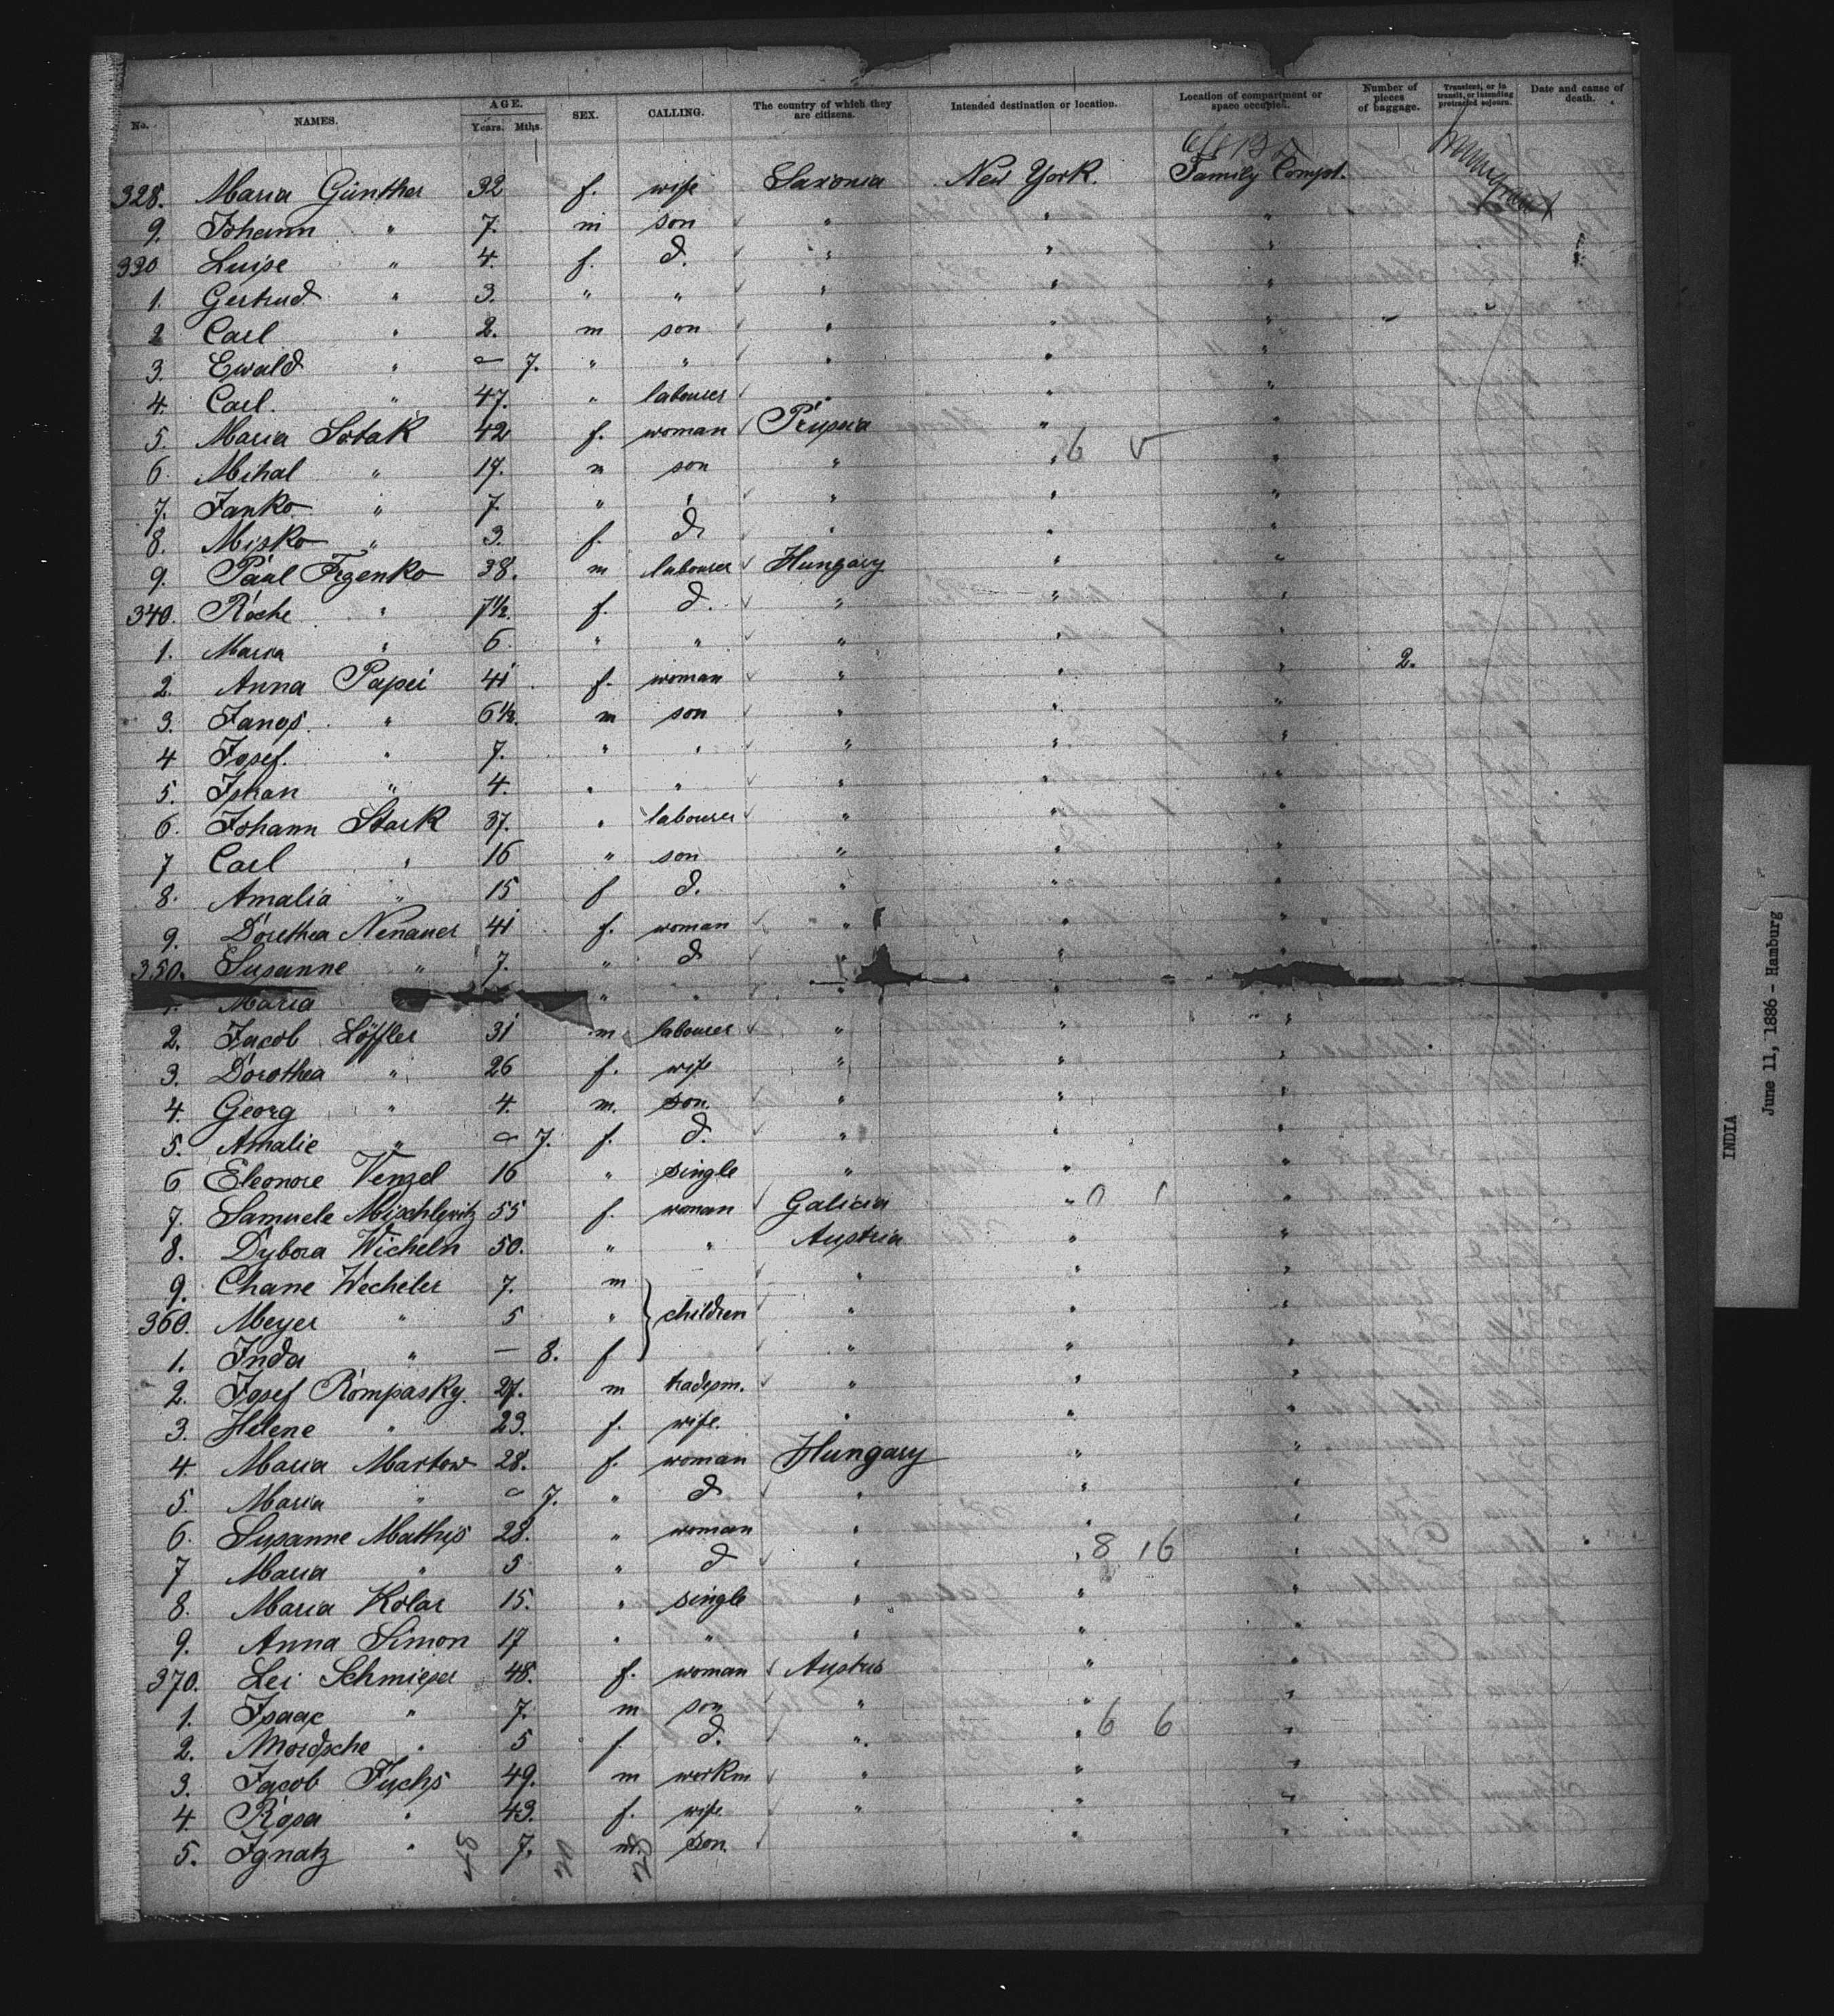 No. NAMES. AGE. Years. Mths. SEX. CALLING. The country of which they are citizens. Intended destination or location. Location of compartment or space occupied. Number of pieces of baggage. Transient, or in transit, or intending protracted sojourn. Date and cause of death.
328. Maria Günther 32 f. wife Saxonia New York. Family Compt.
9. Johann " 7. m son " " "
330 Luise " 4. f. d. " " "
1. Gertrud " 3. " " " " "
2 Carl " 2. m son " " "
3. Ewald " — 7. " " " " "
4. Carl. " 47. " labourer " " "
5 Maria Sotak 42 f. woman Prussia " "
6. Mihal " 17. m son " " " 6
7. Janko " 7. " " " " "
8. Misko " 3. f. d. " " "
9. Paul Frzenko 38. m labourer Hungary " "
340. Roche " 7½. f. d. " " "
1. Maria " 6. " " " " "
2. Anna Papei 41 f. woman " " " 2.
3. Janos. " 6½. m son " " "
4 Josef. " 7. " " " " "
5. Johan " 4. " " " " "
6. Johann Stark 37. " labourer " " "
7 Carl " 16 " son " " "
8. Amalia " 15 f d. " " "
9. Dorothea Nenauer 41 f. woman " " "
350. Susanne " 7. " d " "
1. Maria " " " "
2. Jacob Löffler 31 m labourer " " "
3. Dorothea " 26 f. wife " " "
4. Georg " 4. m. son. " " "
5. Amalie " — 7. f. d. " " "
6 Eleonore Venzel 16 " single " " "
7. Samuele Mischlewitz 55 f. woman Galicia " 0 1 "
8. Dybora Wicheln 50. " " Austria " "
9. Chane Wecheler 7. m " " "
360. Meyer " 5 " children " " "
1. Inda " — 8. f " " "
2. Josef Rompasky. 27. m tradesm. " " "
3. Helene " 23. f. wife. " " "
4. Maria Martow 28. f. woman Hungary " "
5. Maria " — 7. " d " " "
6. Susanne Mathis 28. " woman " " "
7 Maria " 5 " d " " 8 16 "
8. Maria Kolar 15. " single " " "
9. Anna Simon 17 " " " " "
370. Lei Schmieser 48. f. woman Austria " "
1. Isaac " 7. m son " " "
2. Mordsche " 5 f. d. " " 6 6 "
3. Jacob Fuchs 49. m workm " " "
4. Rosa " 43. f. wife " " "
5. Ignatz " 7. m. son. " "
INDIA
June 11, 1886 - Hamburg